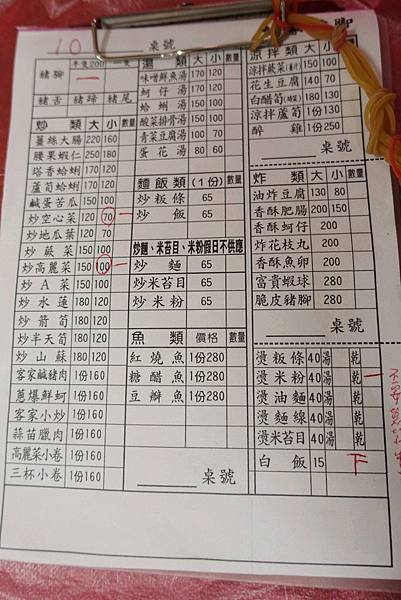 10 桌號
半隻200 一隻
豬腳 一
豬舌 豬蹄 豬尾
炒類 大 小 數量
薑絲大腸 220 160
腰果蝦仁 250 180
塔香蛤蜊 170 120
蘆筍蛤蜊 170 120
鹹蛋苦瓜 150 100
炒空心菜 120 70 一
炒地瓜葉 120 70
炒蕨菜 150 100
炒高麗菜 150 100 一
炒A菜 150 100
炒水蓮 180 120
炒箭筍 180 120
炒半天筍 180 120
炒山蘇 180 120
客家鹹豬肉 1份160
蔥爆鮮蚵 1份160
客家小炒 1份160
蒜苗臘肉 1份160
高麗菜小卷 1份160
三杯小卷 1份160
湯類 大 小 數量
味噌鮮魚湯 170 120
蚵仔湯 170 120
蛤蜊湯 150 100
酸菜排骨湯 150 100
青菜豆腐湯 100 70
蛋花湯 80 60
麵飯類 (1份) 數量
炒粄條 65
炒飯 65
炒麵、米苔目、米粉假日不供應
炒麵 65
炒米苔目 65
炒米粉 65
魚類 價格 數量
紅燒魚 1份280
糖醋魚 1份280
豆瓣魚 1份280
桌號
腳
涼拌類 大 小 數量
涼拌蕨菜 150 100
花生豆腐 140 70
白醋筍 180 130
涼拌蘆筍 1份130
醉雞 1份250
桌號
炸類 大 小 數量
油炸豆腐 130 80
香酥肥腸 200 150
香酥蚵仔 200
炸花枝丸 200
香酥魚卵 200
富貴蝦球 200
脆皮豬腳 200
桌號
燙粄條 40 湯 乾
燙米粉 40 湯 乾 一
燙油麵 40 湯 乾
燙麵線 40 湯 乾
燙米苔目 40 湯 乾
白飯 15 下